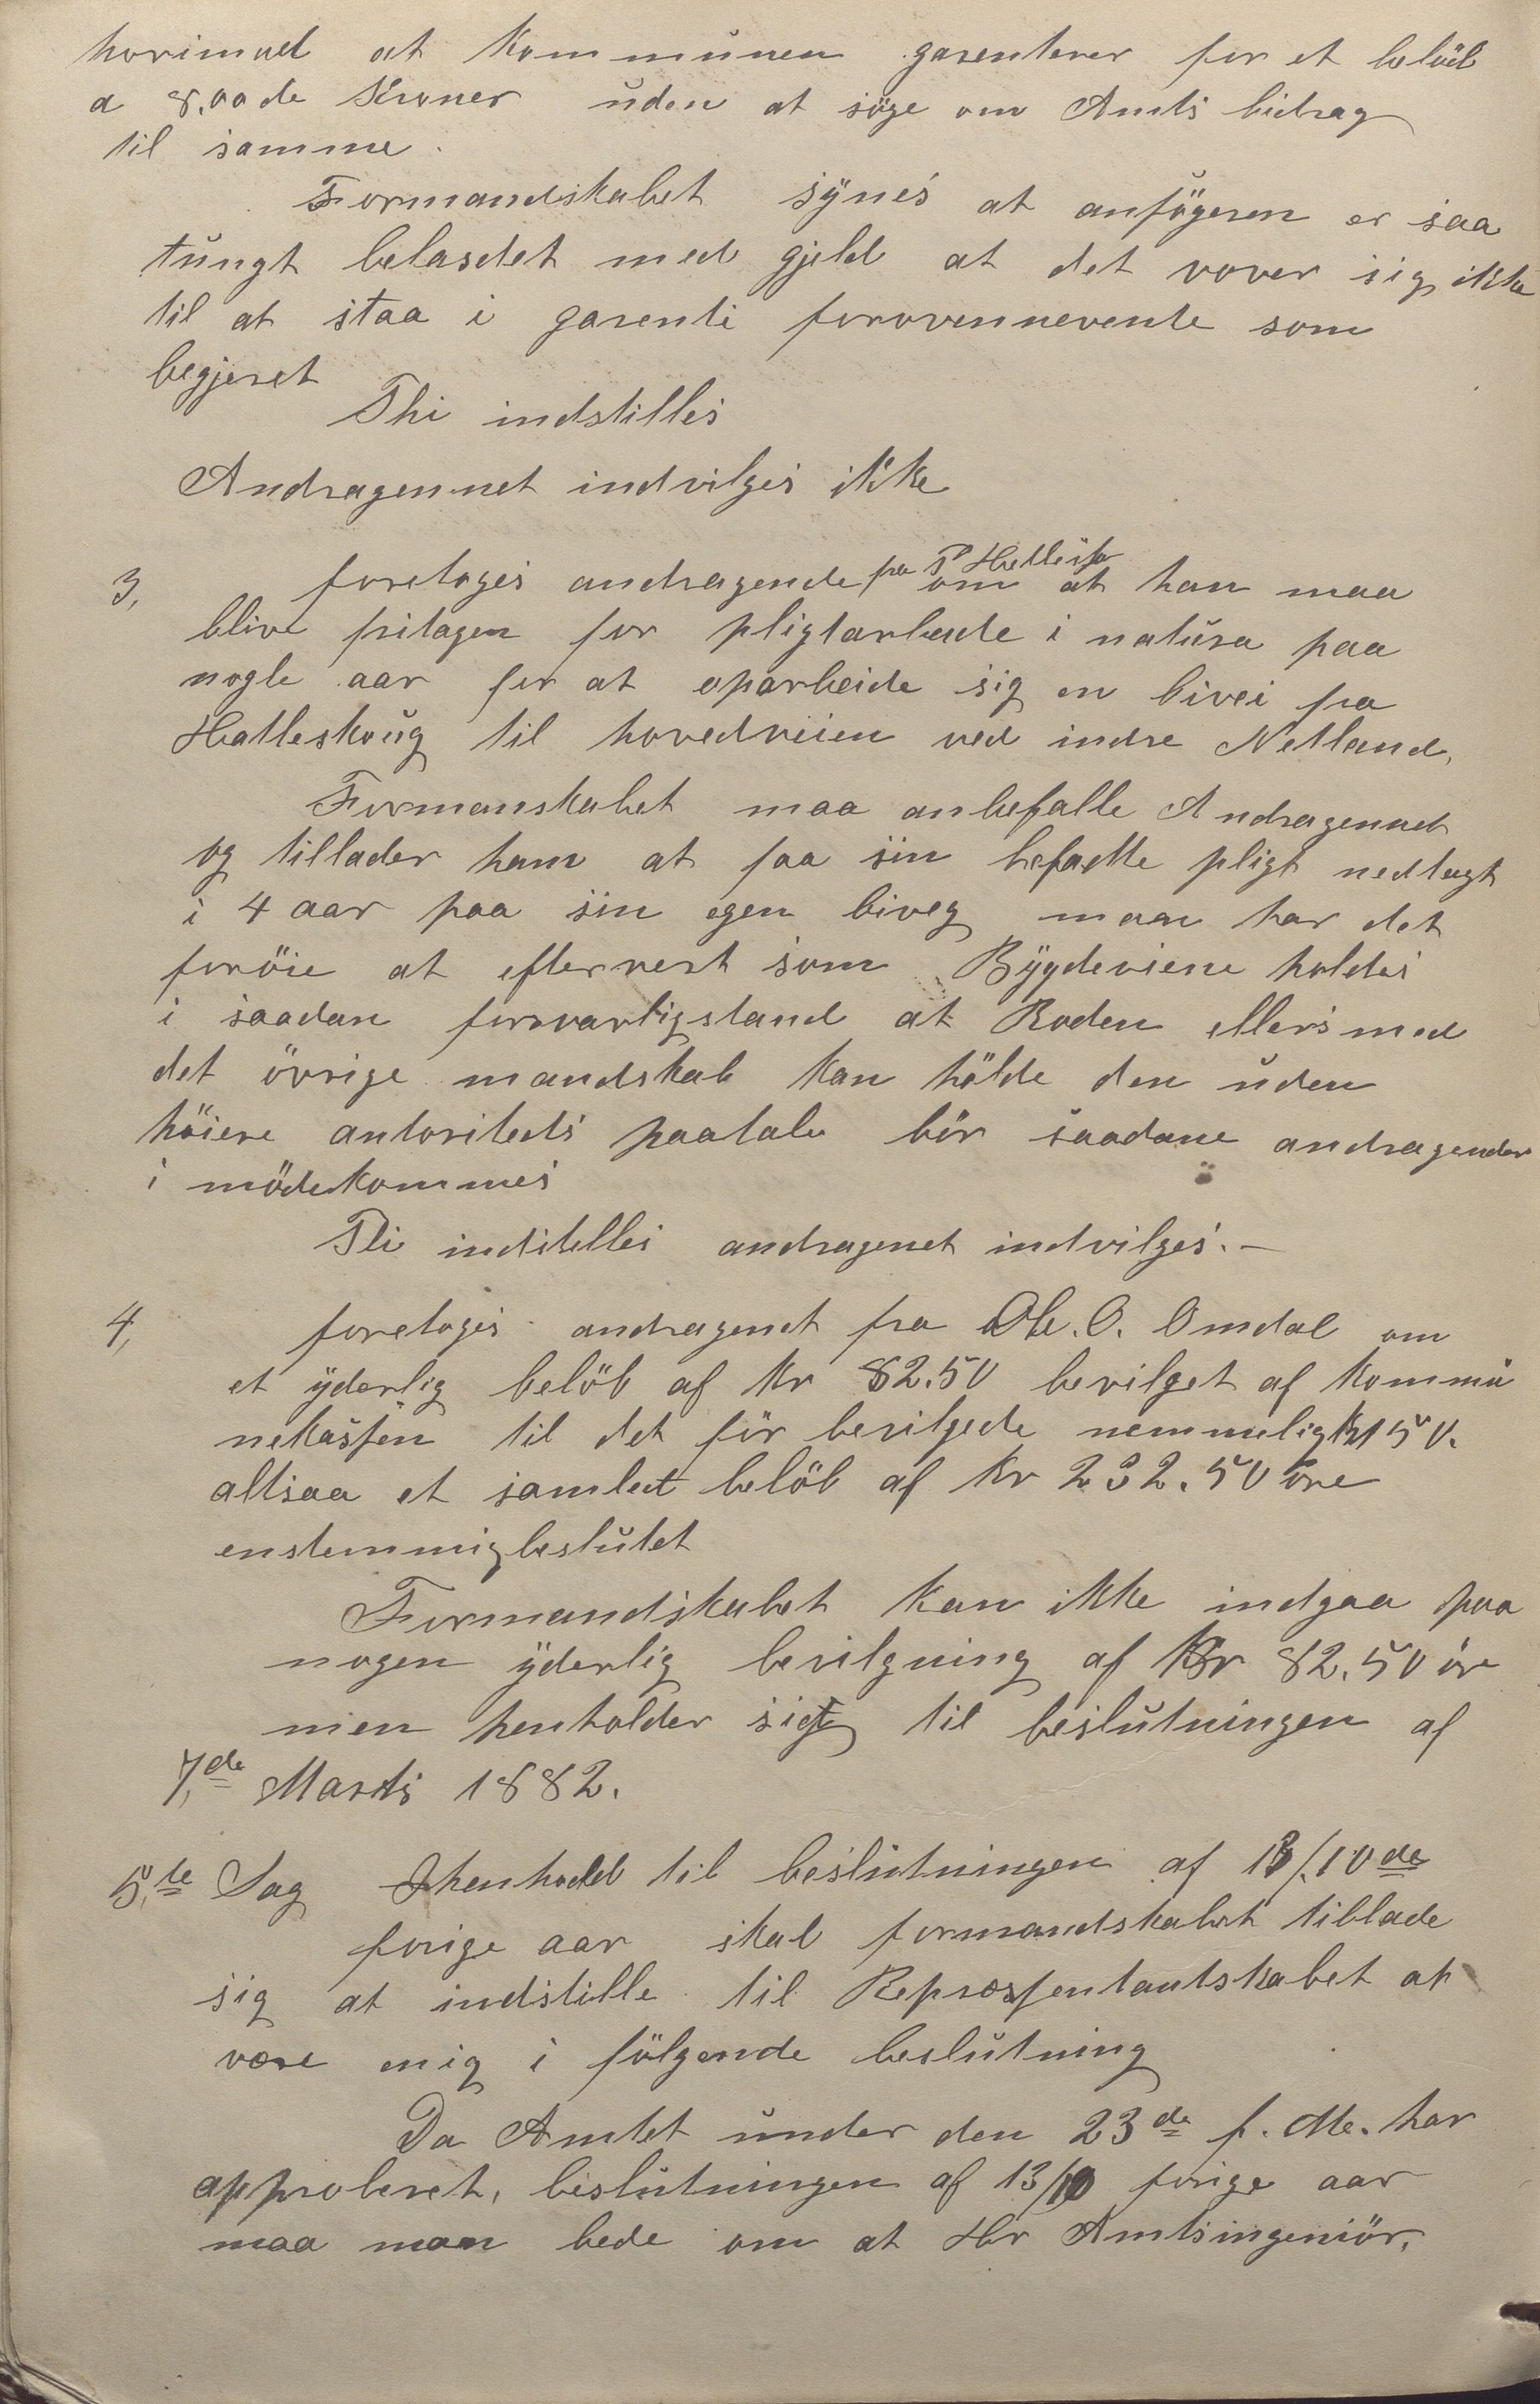 horimod at Kommunen garenterer for et belöb
a 8,00de Kroner uden at söge om Amts bidrag
til samme.
Formandskabet synes at ansögeren er saa
tungt belasdet med gjeld at det vover sig ikke
til at staa i garenti forovennevente som
begjeret
Thi indstilles
Andragennet indvilges ikke
3, foretoges andragende fra P Hatlesko om at han maa
blive fritagen for pligtarbeide i natura paa
nogle aar for at oparbeide sig en bivei fra
Hatleskoug til hovedveien ved indre Netland.
Formanskabet maa anbefalle Andragennet
og tillader ham at faa sin befadte pligt nedlagt
i 4 aar paa sin egen biveg man har det
foröie at efterverst som Bygdeviene holdes
i saadan forsvarligstand at Roden ellers med
det övrige mandskab kan hölde den uden
höiere autoriteds paatale bör saadane andragender
i mödekommes
Thi indstelles andragenet indvilges. —
4, foretoges andragenet fra Ole. O. Omdal om
et yderlig belöb af Kr 82.50 bevilget af Kommu
nekassen til det för bevilgede nemmelig Kr 150.
altsaa et samlet belöb af Kr 232.50 öre
enstemmig beslutet
Formandskabet kan ikke indgaa paa
nogen yderlig bevilgning af Kr 82.50 öre
men henholder sig til beslutningen af
7,de Marts 1882.
5,te Sag Ihenhold til beslutningen af 13/10de
forige aar skal formandskabet tillade
sig at indstille til Repræssentantskabet at
være enig i fölgende beslutning
Da Amtet under den 23de f. Me. har
approberet, beslutningen af 13/10 forige aar
maa man bede om at Hr Amtsingeniör.